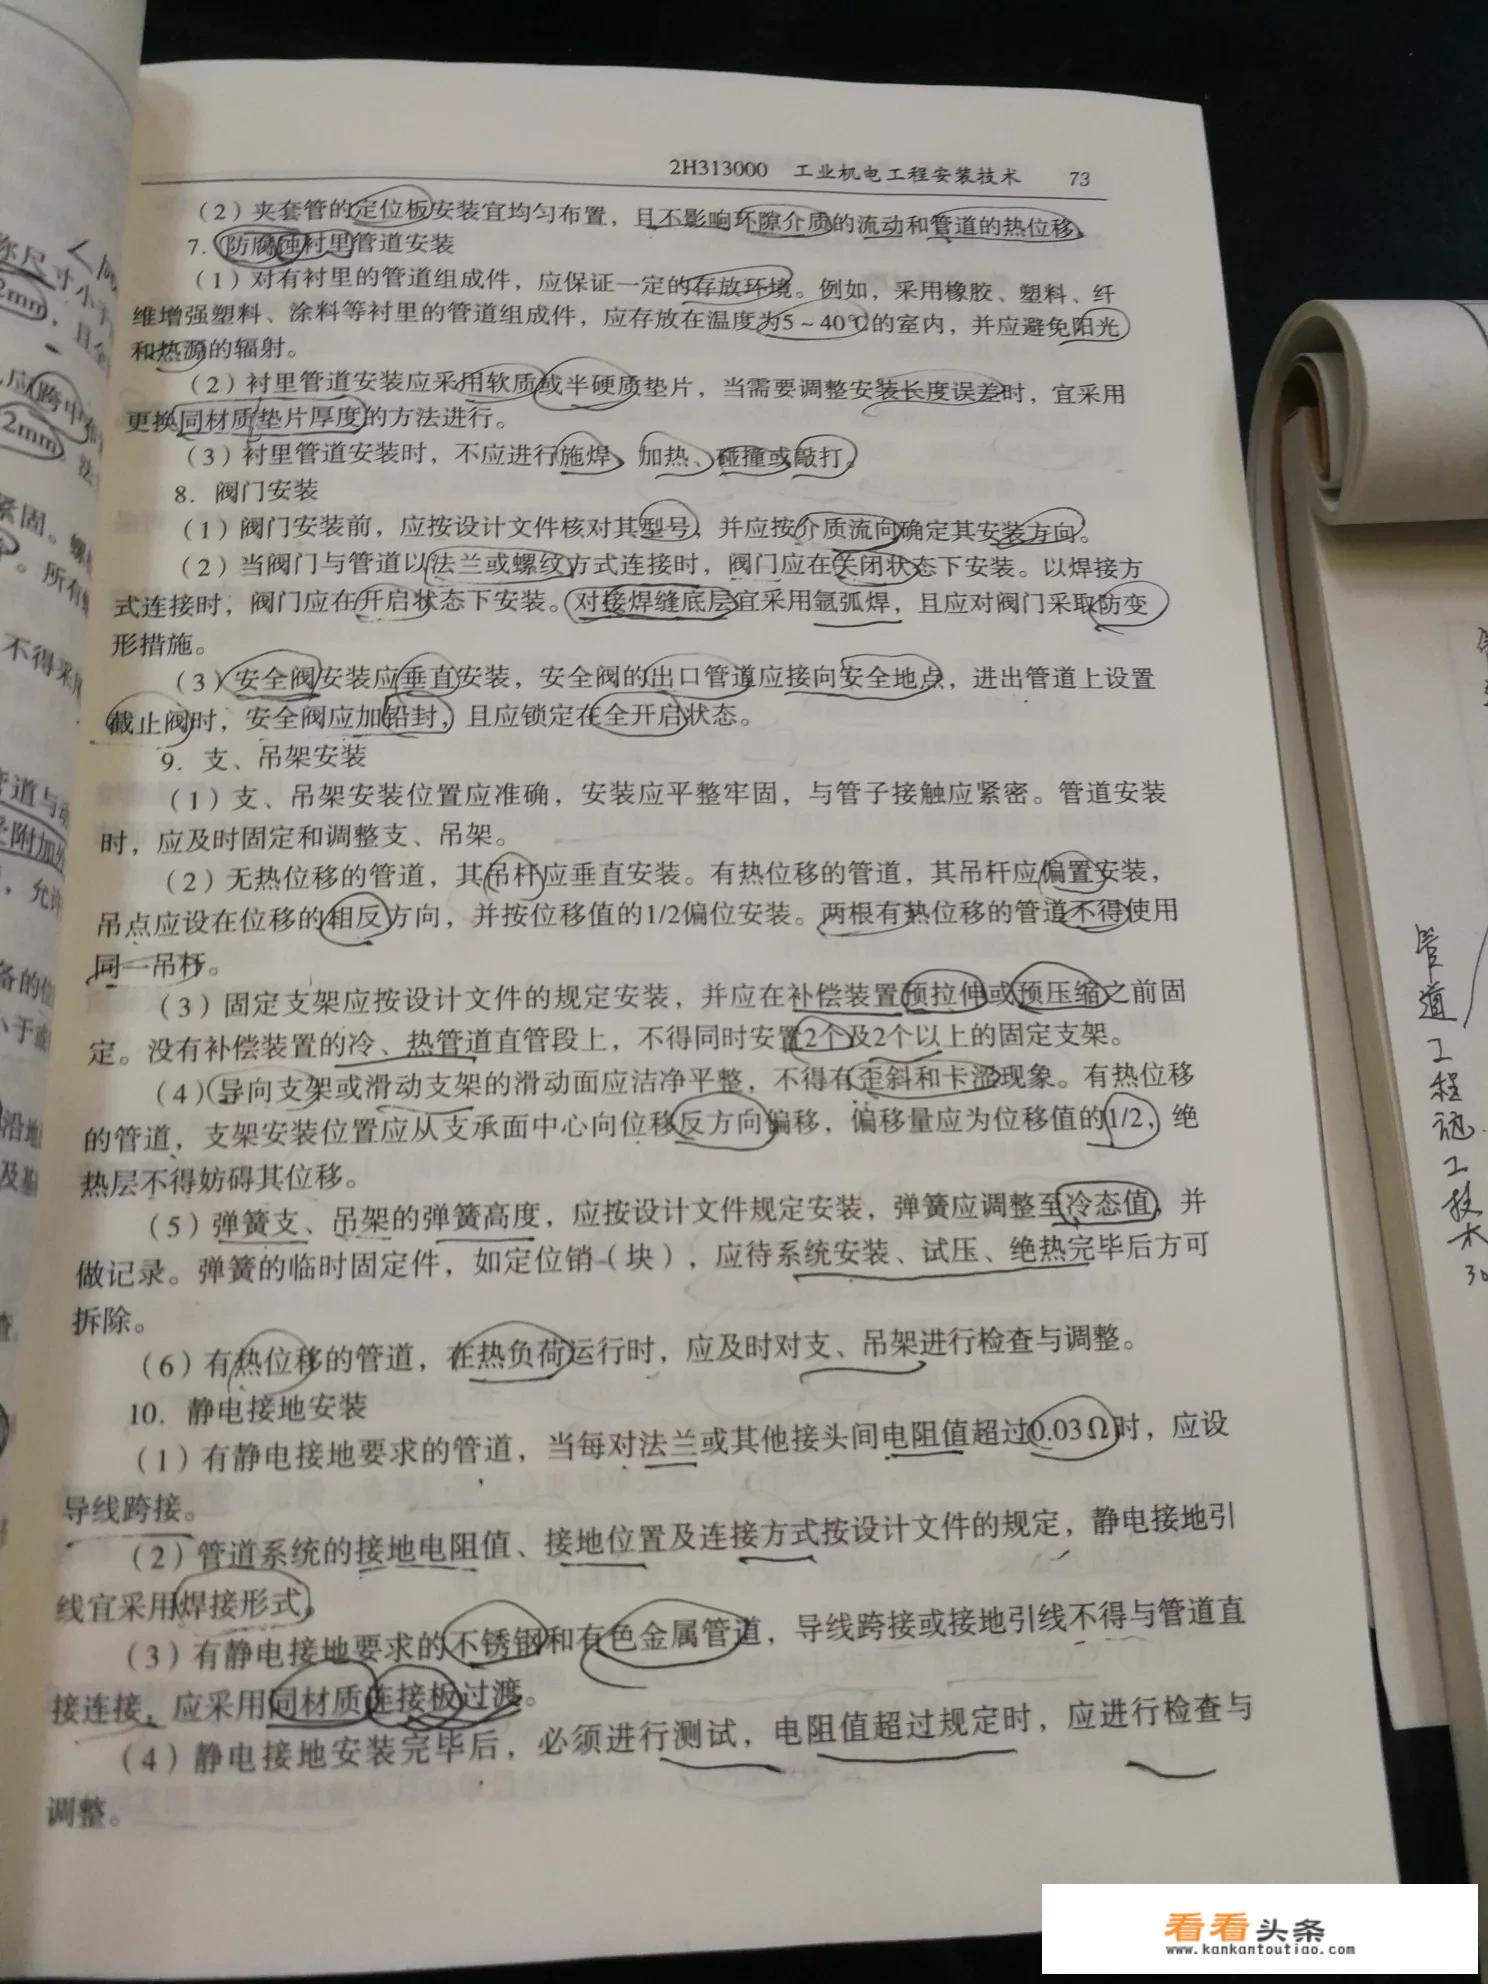 2H313000 工业机电工程安装技术 73
（2）夹套管的定位板安装宜均匀布置，且不影响环隙介质的流动和管道的热位移。
7. 防腐蚀衬里管道安装
（1）对有衬里的管道组成件，应保证一定的存放环境。例如，采用橡胶、塑料、纤
维增强塑料、涂料等衬里的管道组成件，应存放在温度为5～40℃的室内，并应避免阳光
和热源的辐射。
（2）衬里管道安装应采用软质或半硬质垫片，当需要调整安装长度误差时，宜采用
更换同材质垫片厚度的方法进行。
（3）衬里管道安装时，不应进行施焊、加热、碰撞或敲打。
8. 阀门安装
（1）阀门安装前，应按设计文件核对其型号，并应按介质流向确定其安装方向。
（2）当阀门与管道以法兰或螺纹方式连接时，阀门应在关闭状态下安装。以焊接方
式连接时，阀门应在开启状态下安装。对接焊缝底层宜采用氩弧焊，且应对阀门采取防变
形措施。
（3）安全阀安装应垂直安装，安全阀的出口管道应接向安全地点，进出管道上设置
截止阀时，安全阀应加铅封，且应锁定在全开启状态。
9. 支、吊架安装
（1）支、吊架安装位置应准确，安装应平整牢固，与管子接触应紧密。管道安装
时，应及时固定和调整支、吊架。
（2）无热位移的管道，其吊杆应垂直安装。有热位移的管道，其吊杆应偏置安装，
吊点应设在位移的相反方向，并按位移值的1/2偏位安装。两根有热位移的管道不得使用
同一吊杆。
（3）固定支架应按设计文件的规定安装，并应在补偿装置预拉伸或预压缩之前固
定。没有补偿装置的冷、热管道直管段上，不得同时安置2个及2个以上的固定支架。
（4）导向支架或滑动支架的滑动面应洁净平整，不得有歪斜和卡涩现象。有热位移
的管道，支架安装位置应从支承面中心向位移反方向偏移，偏移量应为位移值的1/2，绝
热层不得妨碍其位移。
（5）弹簧支、吊架的弹簧高度，应按设计文件规定安装，弹簧应调整至冷态值，并
做记录。弹簧的临时固定件，如定位销（块），应待系统安装、试压、绝热完毕后方可
拆除。
（6）有热位移的管道，在热负荷运行时，应及时对支、吊架进行检查与调整。
10. 静电接地安装
（1）有静电接地要求的管道，当每对法兰或其他接头间电阻值超过0.03Ω时，应设
导线跨接。
（2）管道系统的接地电阻值、接地位置及连接方式按设计文件的规定，静电接地引
线宜采用焊接形式。
（3）有静电接地要求的不锈钢和有色金属管道，导线跨接或接地引线不得与管道直
接连接，应采用同材质连接板过渡。
（4）静电接地安装完毕后，必须进行测试，电阻值超过规定时，应进行检查与
调整。
称尺寸小于
2mm，且全
应跨中
2mm。法
紧固。螺
。所有
不得采用
管道与
附加
，允许
备的位
小于
沿地
及基
管道工程施工技术
看看头条
www.kankantoutiao.com